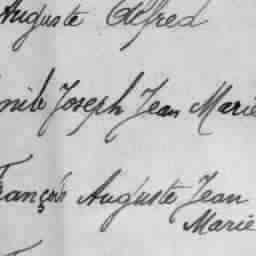 Auguste Alfred
Emile Joseph Jean Marie
François Auguste Jean
Marie